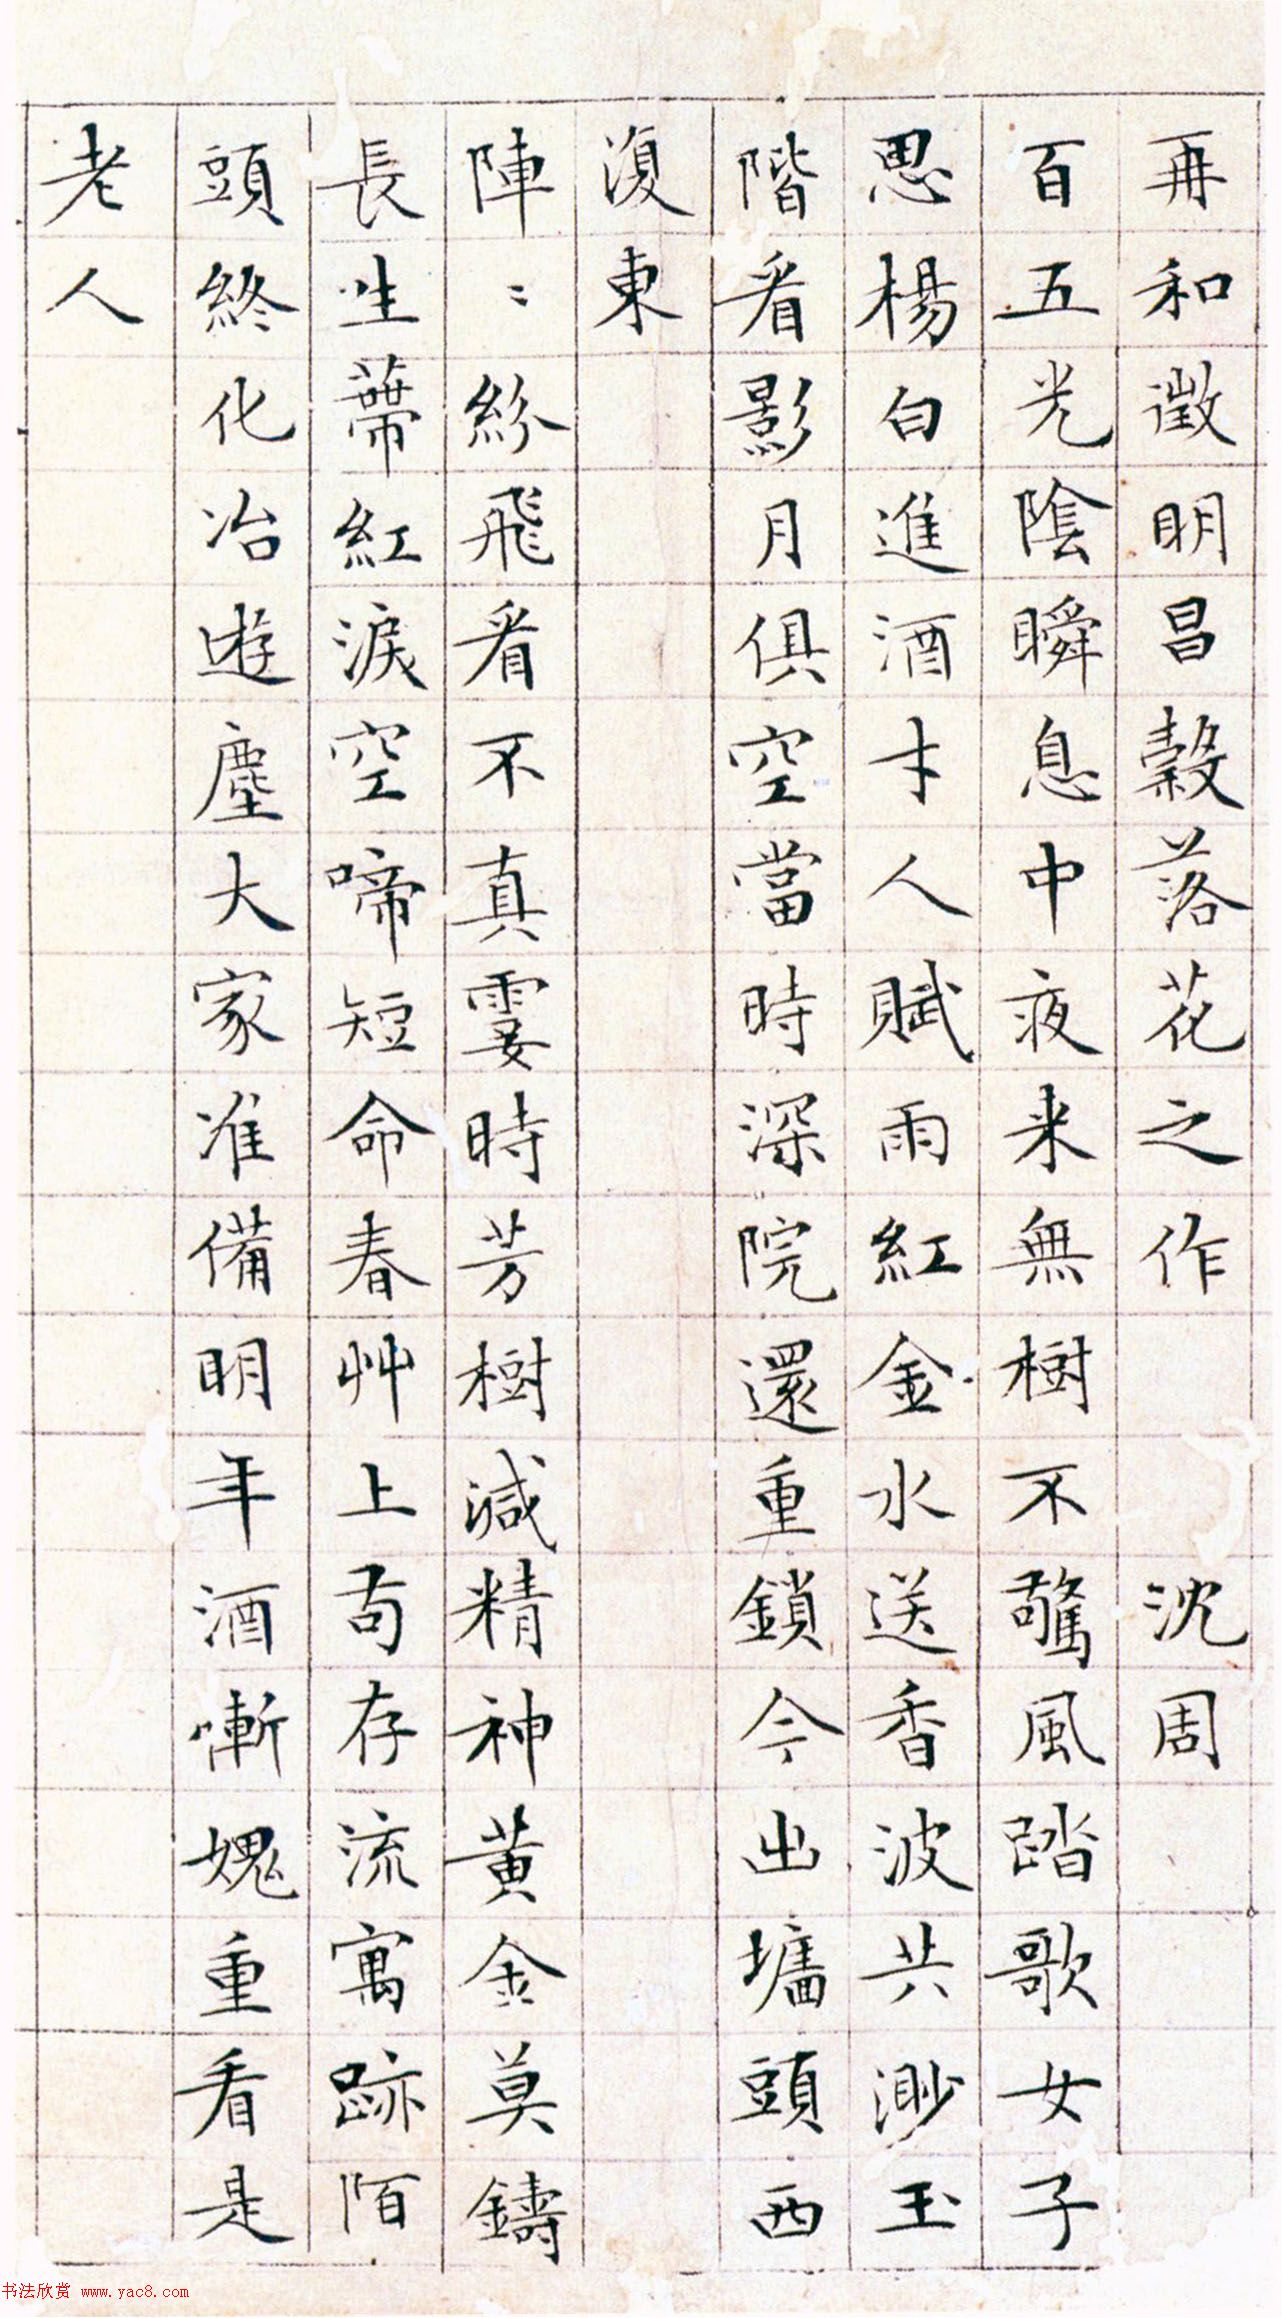 再和徵明昌穀落花之作 沈周
百五光陰瞬息中夜来無樹不驚風踏歌女子
思楊白進酒才人賦雨紅金水送香波共渺玉
階看影月俱空當時深院還重鎖今出墻頭西
復東
陣〻紛飛看不真霎時芳樹減精神黄金莫鑄
長生蔕紅淚空啼短命春艸上苟存流寓跡陌
頭終化冶遊塵大家准備明年酒慚媿重看是
老人
书法欣赏 www.yac8.com